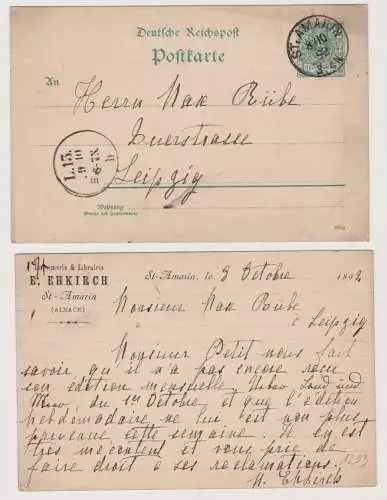 Deutsche Reichspost
Postkarte
ST. AMARIN
8/10
92
3-4N
An
Herrn Max Rübe
Querstrasse
Leipzig
L.13.
9 10
6-7N
b
Wohnung
(Straße und Hausnummer)
Imprimerie & Librairie
E. EHKIRCH
St-Amarin
(ALSACE)
St-Amarin, le 8 Octobre 1892
Monsieur Max Rübe
à Leipzig
Monsieur Petit nous fait
savoir qu'il n'a pas encore reçu
son édition mensuelle Ueber Land und
Meer, du 1er Octobre et que l'édition
hebdomadaire ne lui est non plus
parvenue cette semaine. Il en est
très mécontent et vous prie de
faire droit à ses réclamations.
Ehkirch